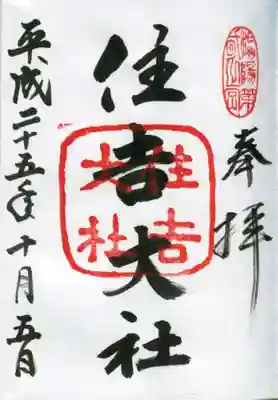 奉拝
住吉大社
住吉
大社
平成二十五年十月五日